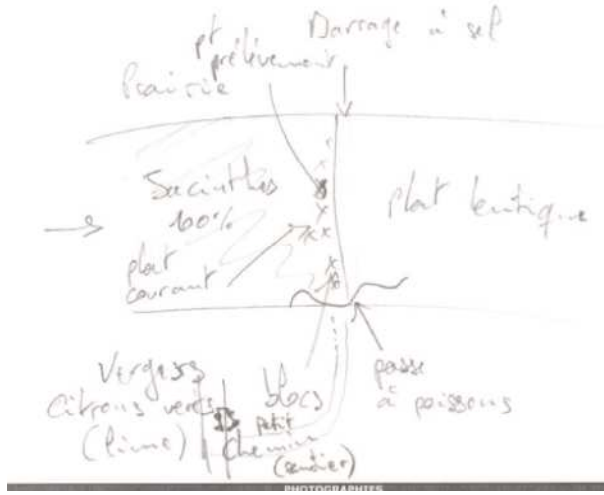 Barrage à sel
pt
prélèvement
Prairie
Jacinthes
100%
plat
courant
plat lentique
Vergers
citrons verts
(lime)
blocs
petit
chemin
(sentier)
passe
à poissons
PHOTOGRAPHIES